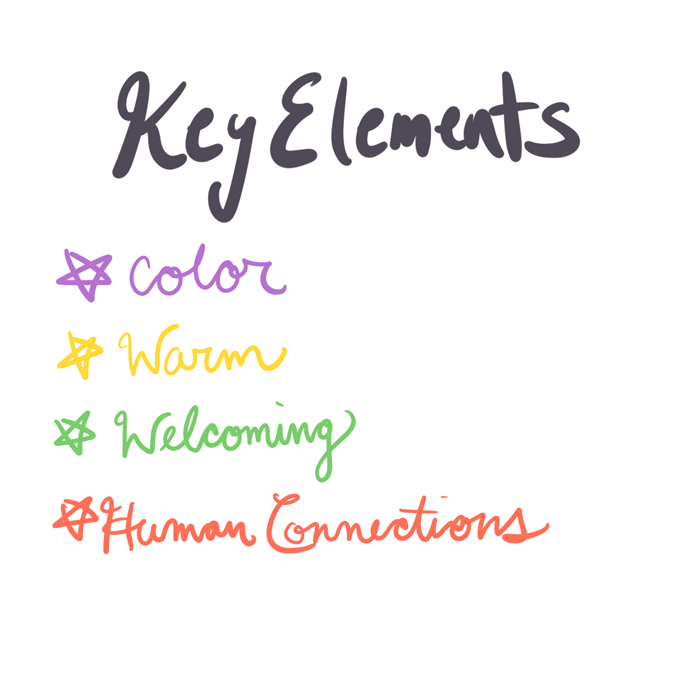 Key Elements
Color
Warm
Welcoming
Human Connections